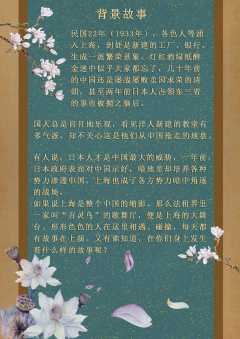 背景故事
民国22年（1933年），各色人等涌
入上海，到处是新建的工厂、银行，
生成一派繁荣景象。灯红酒绿纸醉
金迷中似乎大家都忘了，几十年前
的中国还是屡战屡败监国求荣的场
甚至两年前日本人占领东三省
的事也被抛之脑后。
国人总是盲目地乐观，看见洋人新建的教堂有
多气派，却不关心这是他们从中国抢走的
有人说，日本人才是中国最大的威胁，一年前，
日本政府表面对中国示好，暗地里却培养各种
势力渗透中国，上海也成了各方势力暗中角逐
的战场。
如果说上海是整个中国的缩影，那么法租界里
一家叫“百灵鸟”的歌舞厅，便是上海的大舞
台，形形色色的人在这里相遇、碰撞，每天都
有故事在上演。又有谁知道，在你们身上发生
着什么样的故事呢？